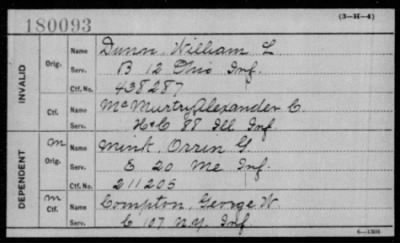 180093 (3—H—4)
INVALID Orig. Name Dunn, William L
Serv. B 12 Ohio Inf.
Ctf. No. 438287
Ctf. Name McMurtry, Alexander C.
Serv. H&C 88 Ill Inf
DEPENDENT m Orig. Name Mink, Orrin G.
Serv. E 20 Me Inf.
Ctf. No. 211205
m Ctf. Name Compton, George W.
Serv. C 107 N.Y. Inf